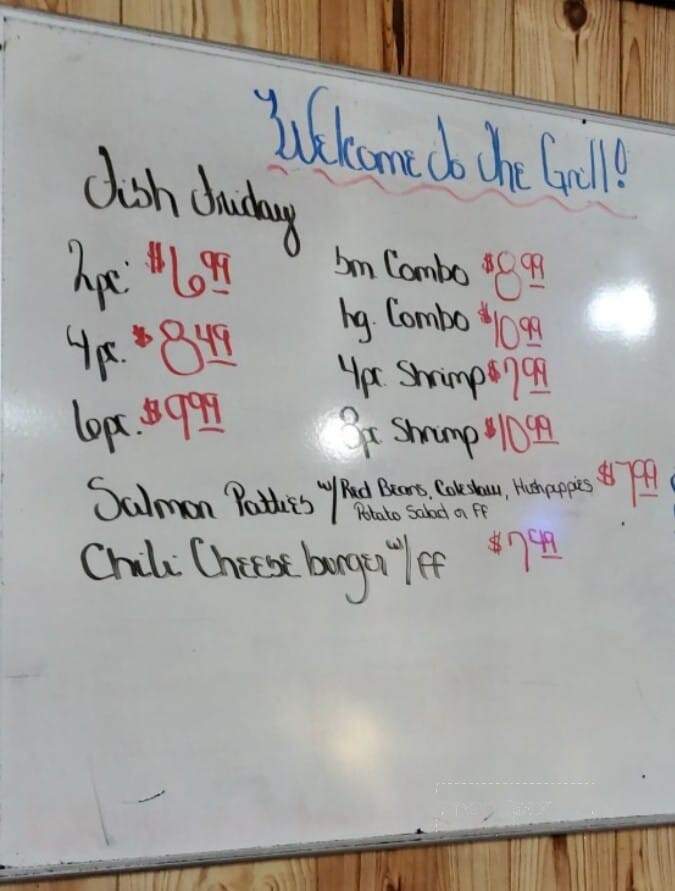 Welcome to the Grill!
Fish Friday
2pc. $6.99
4pc. $8.49
6pc. $9.99
sm Combo $8.99
lg. Combo $10.99
4pc. Shrimp $7.99
8pc Shrimp $10.99
Salmon Patties w/ Red Beans, Coleslaw, Hushpuppies $7.99
Potato Salad or FF
Chili Cheese burger w/ FF $7.49